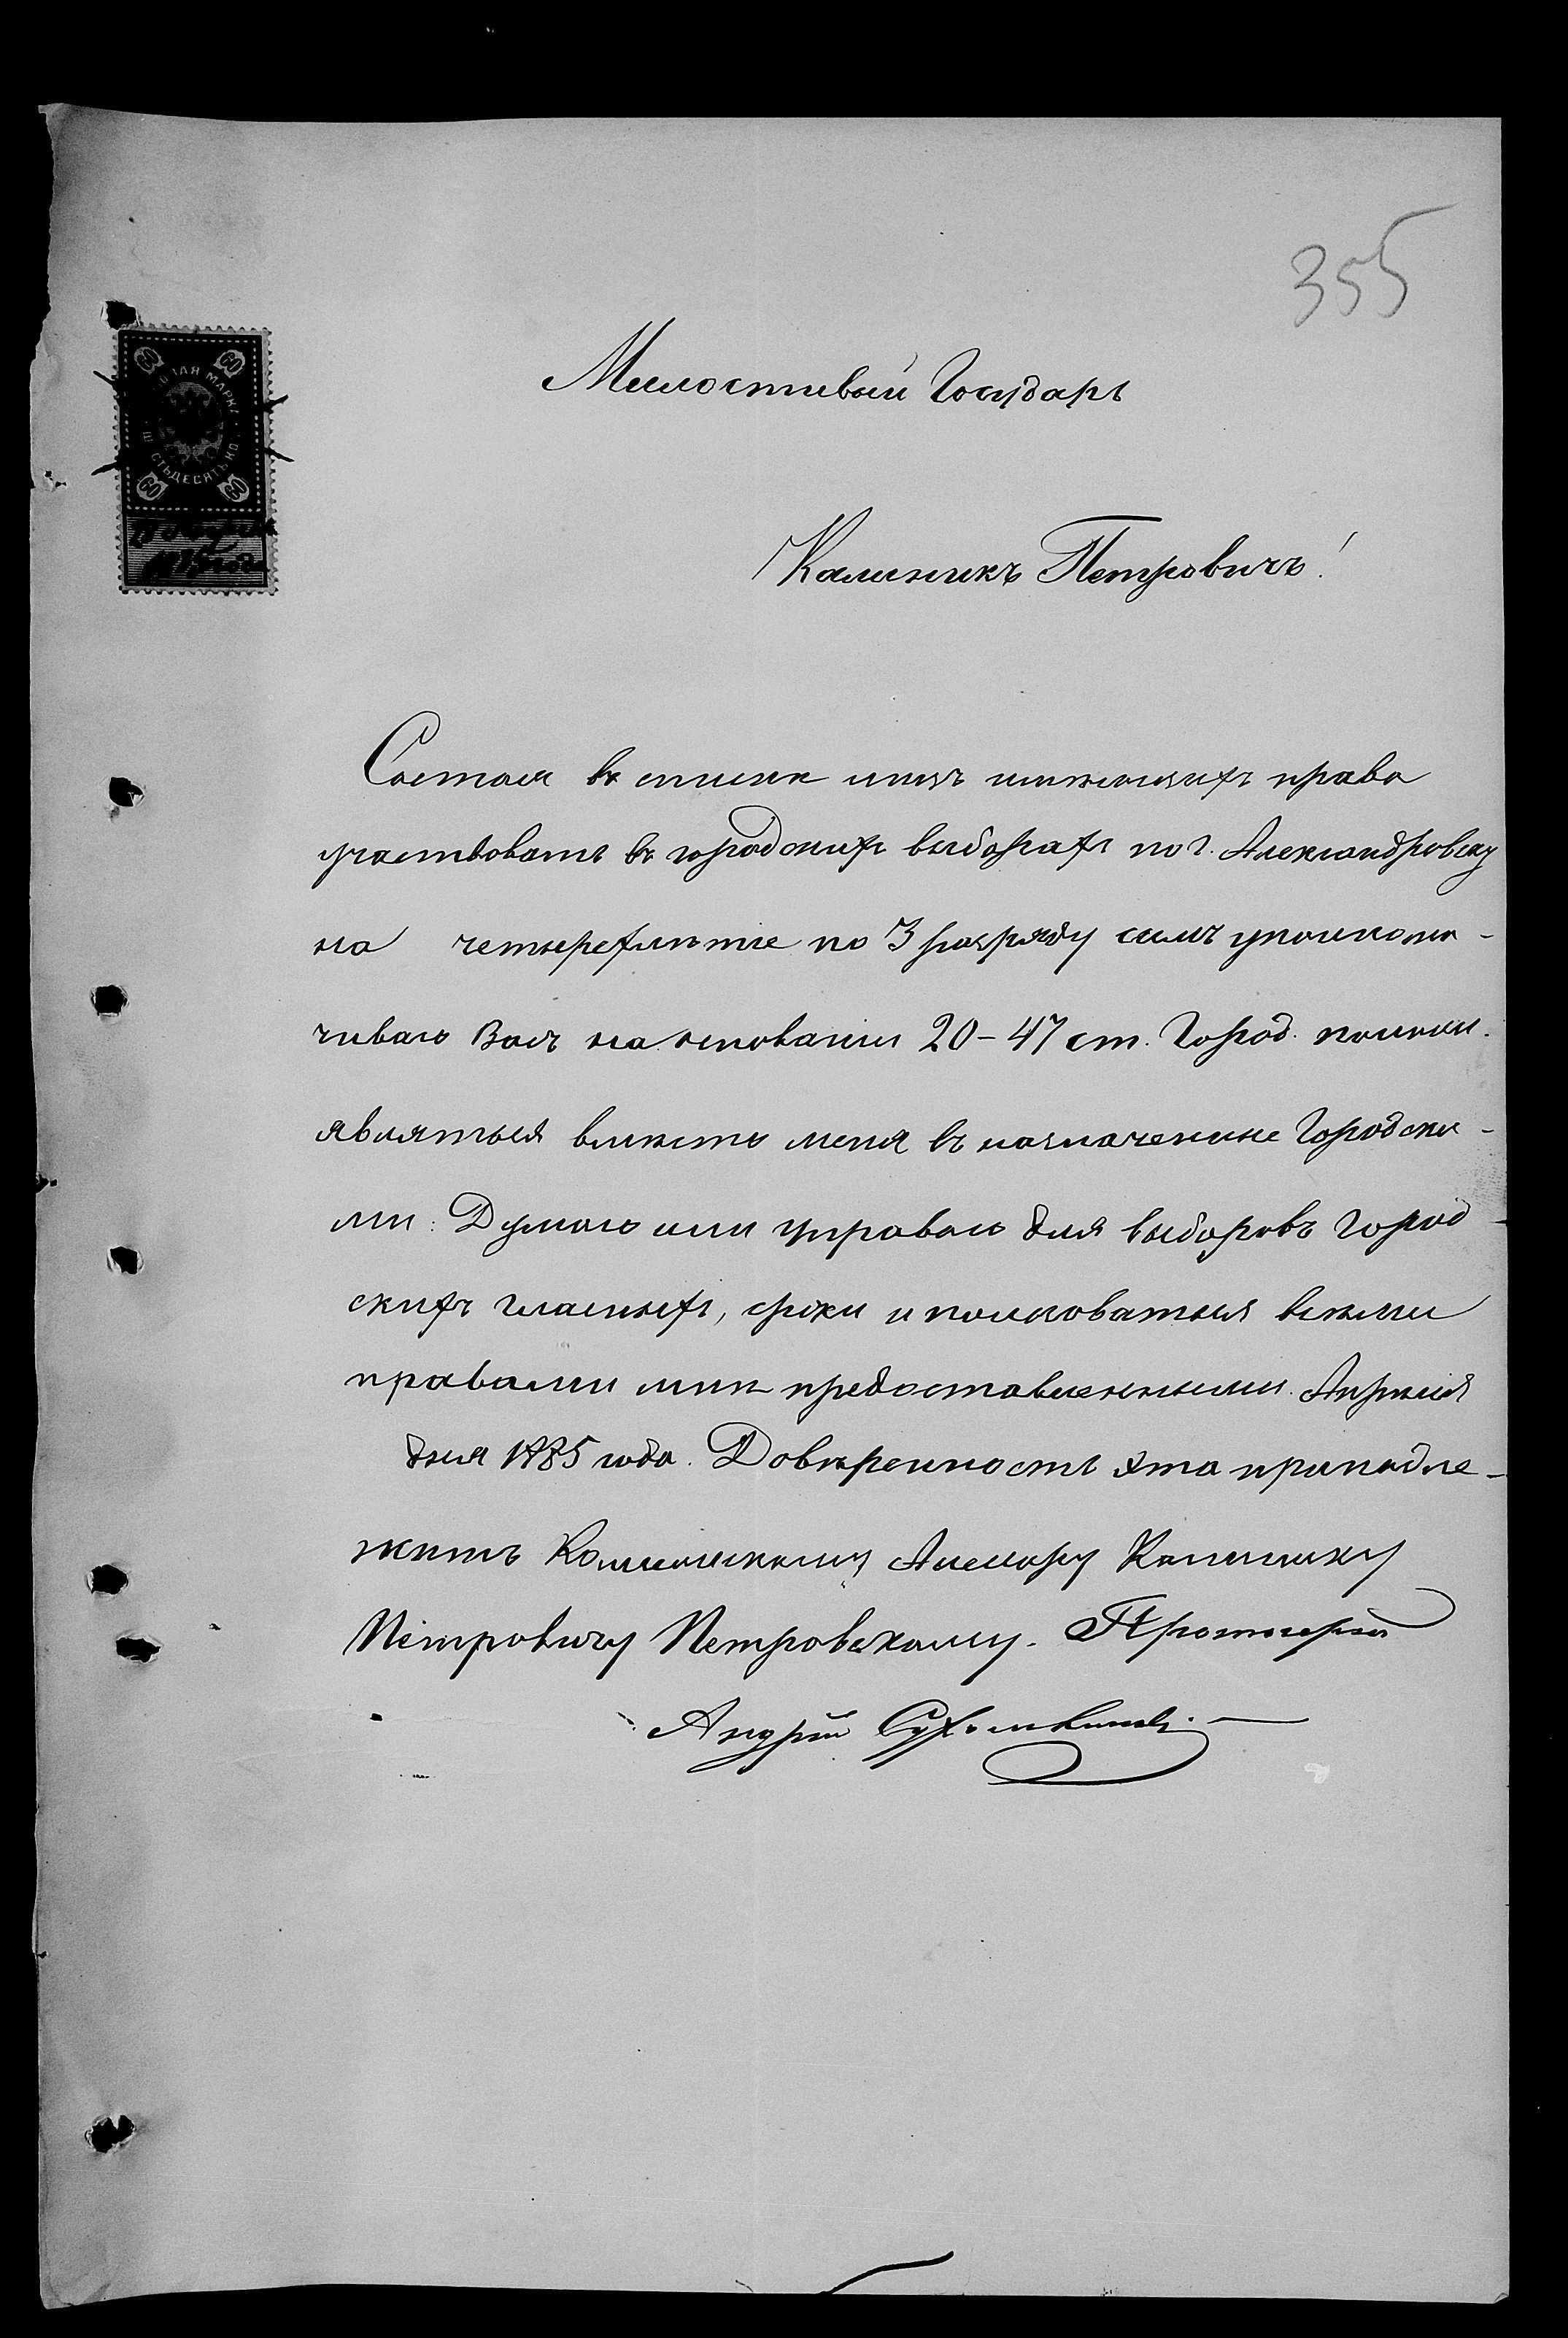 355
Милостивый Государь
Калиникъ Петровичъ!
Состоя въ списке лицъ имеющихъ право
участвовать въ городскихъ выборахъ по г. Александровску
на четырехлѣтіе по 3 разряду симъ уполномо-
чиваю Васъ на основаніи 20-47 ст. Город. полож.
являться вмѣсто меня въ назначенные Городски-
ми: Думою или управою для выборовъ город-
скихъ гласныхъ, сроки и пользоваться всѣми
правами мнѣ предоставленными. Апрѣля
дня 1885 года. Довѣренность эта принадле-
житъ Калинику
Петровичу Петровскому. Протоіерей
Андрей
МАРКА
60
60
60
60